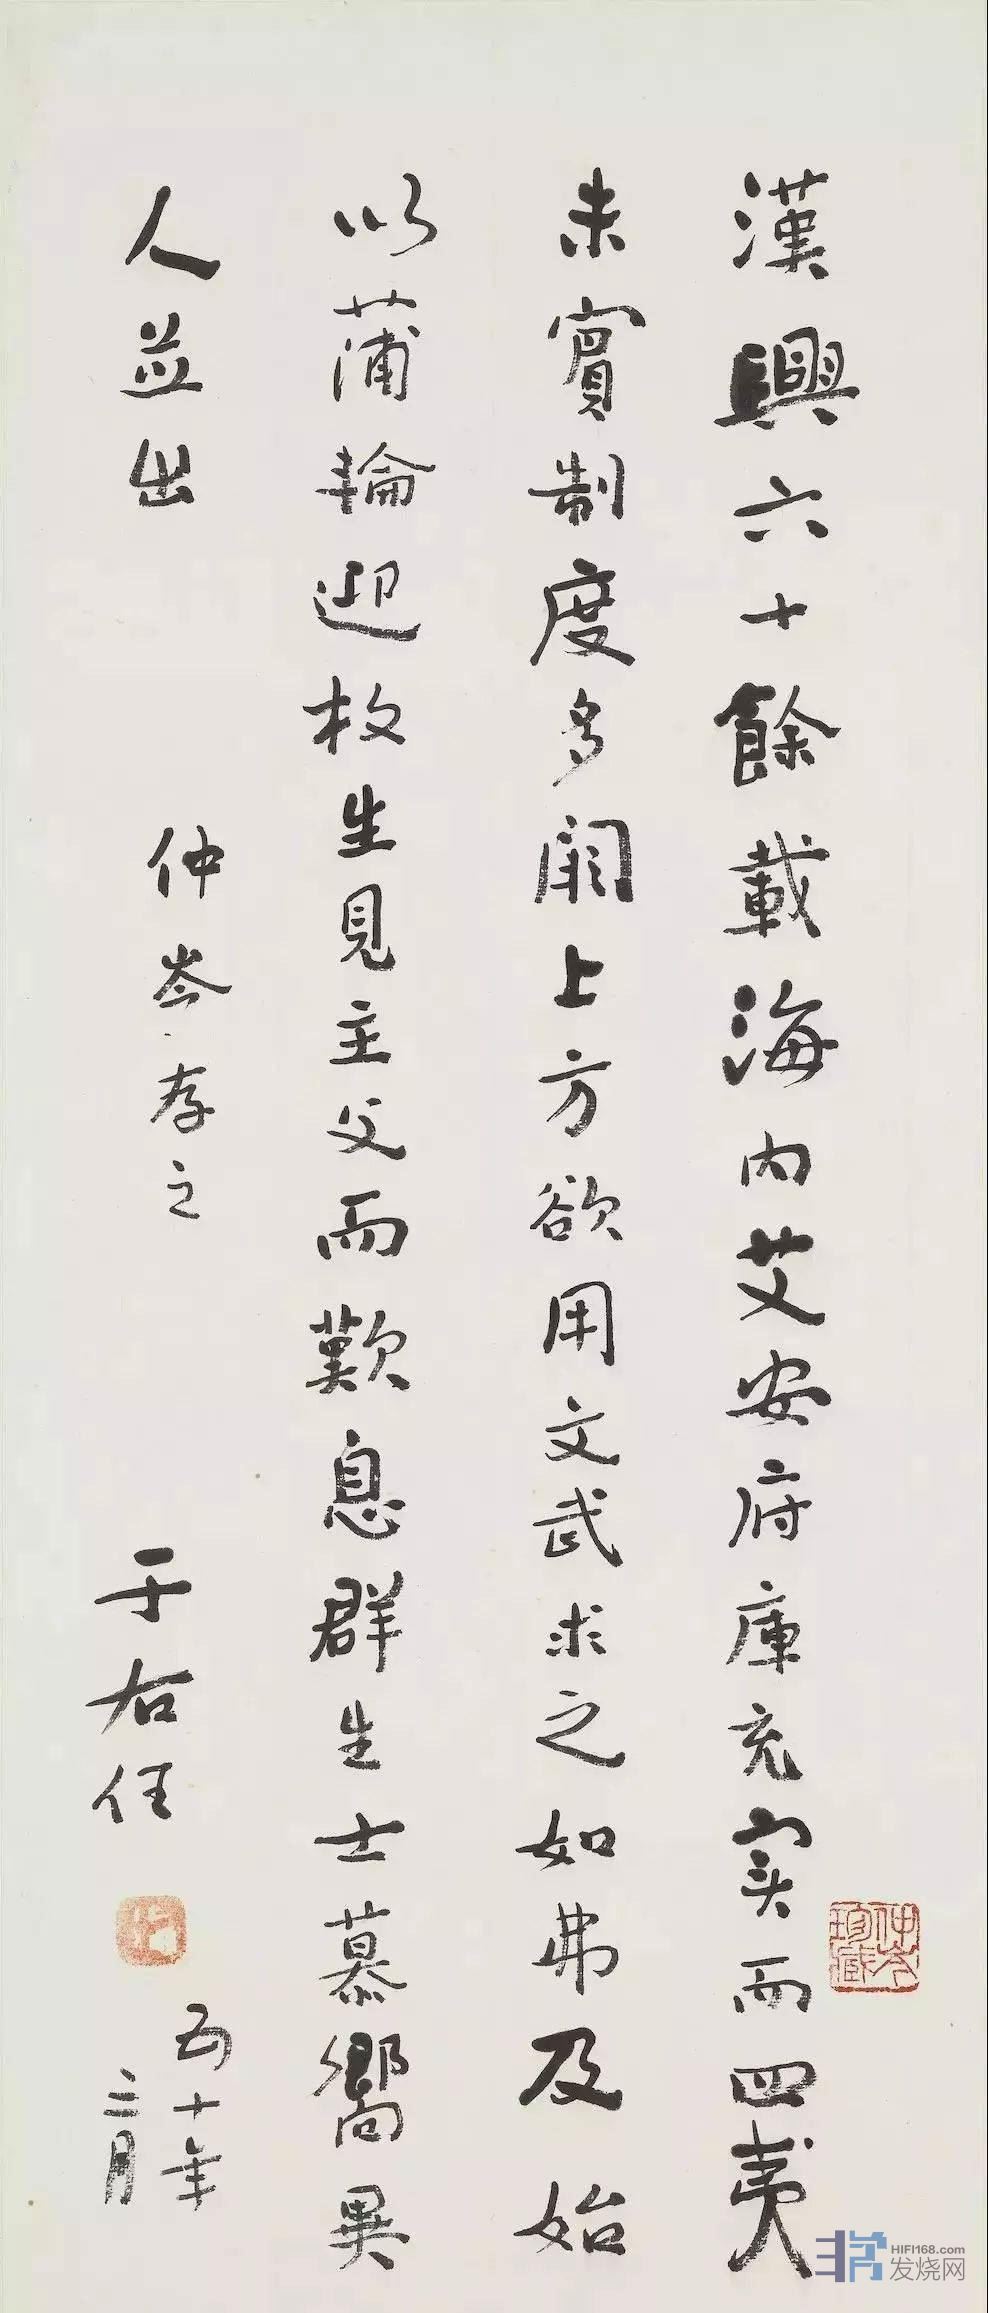 漢興六十餘載海内艾安府庫充实而四夷
未賓制度多闕上方欲用文武求之如弗及始
以蒲輪迎枚生見主父而歎息群生士慕嚮異
人並出
仲岑存之
于右任
五十年
二月
仲岑珍藏
HIFI168.com
发烧网